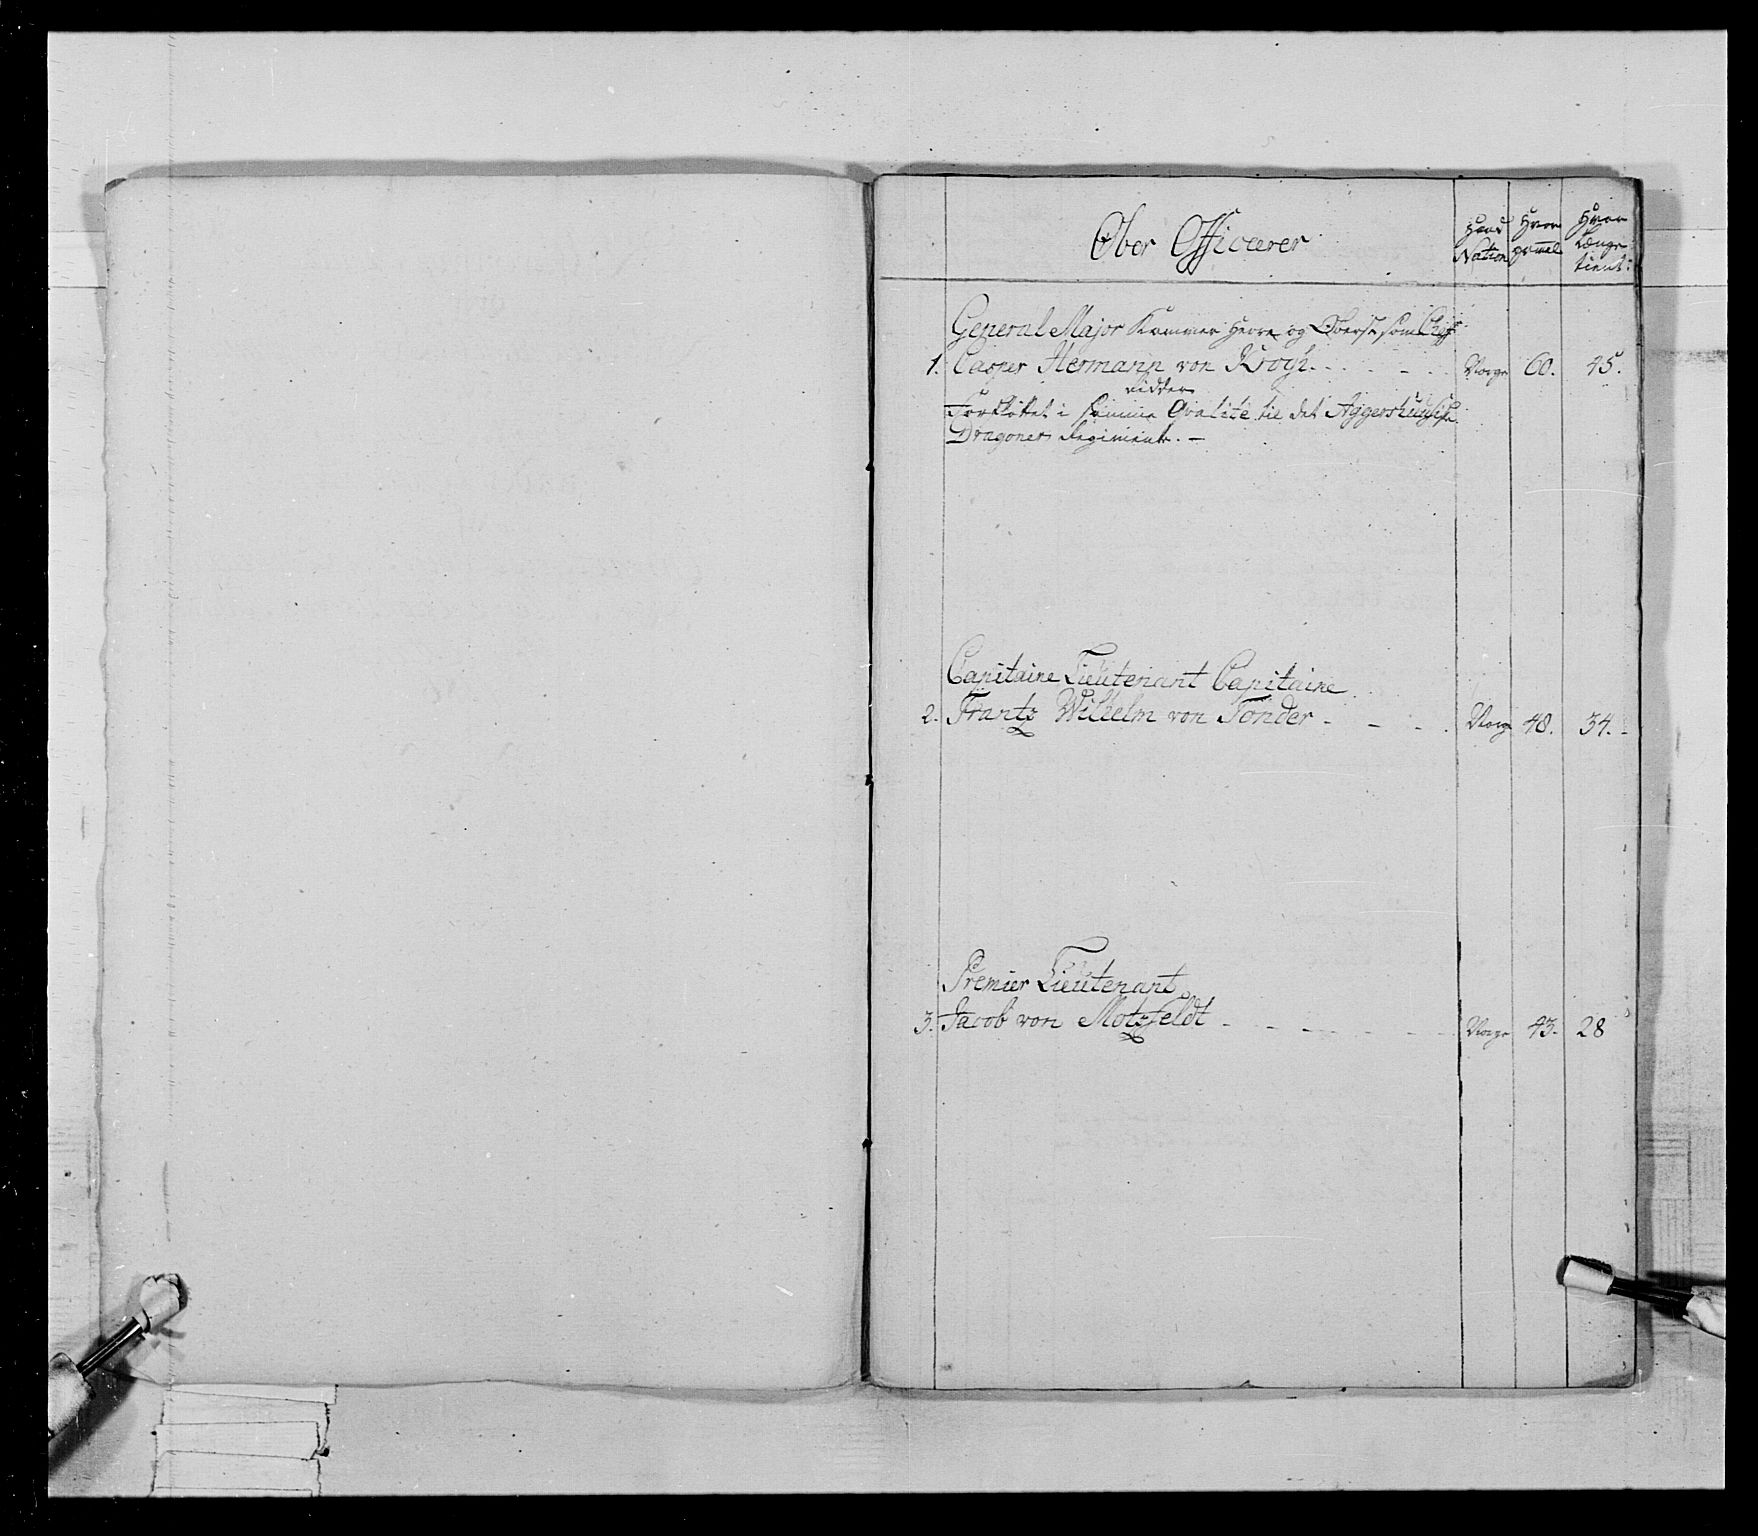 Ober Officerer
Hvad Nation
Hvor gammel
Hvor Længe tient:
General Major Kammer Herre og Oberst som Chef
1. Casper Hermann von Krogh. Norge 60. 45.
ridder
Forfløttet i samme Qvalité til det Aggershuusiske
Dragoner Regiment. -
Capitaine Lieutenant Capitaine
2. Frantz Wilhelm von Tönder - - - . Norge 48. 34. -
Premier Lieutenant
3. Jacob von Motzfeldt - - - - - - Norge 43. 28